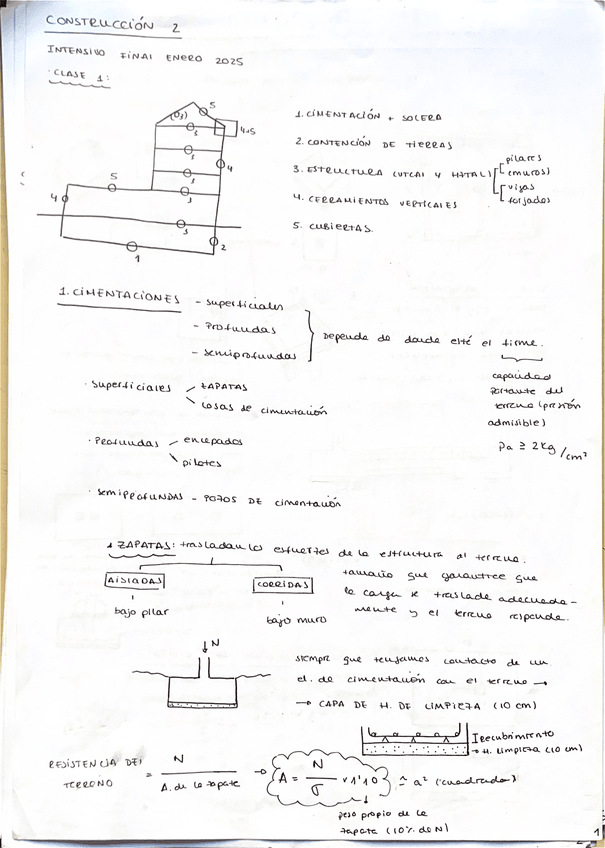 CONSTRUCCIÓN 2
INTENSIVO FINAL ENERO 2025
· CLASE 1:
5
(3)
3
4+5
3
4
3
5
3
4
3
2
1
1. CIMENTACIÓN + SOLERA
2. CONTENCIÓN DE TIERRAS
3. ESTRUCTURA (VTCAL Y HZTAL)
pilares
(muros)
vigas
forjados
4. CERRAMIENTOS VERTICALES
5. CUBIERTAS.
1. CIMENTACIONES - superficiales
- PROFUNDAS
- semiprofundas
Depende de donde esté el firme.
capacidad
portante del
terreno (presión
admisible)
Pa ≥ 2 kg/cm²
· superficiales
ZAPATAS
Losas de cimentación
· PROFUNDAS
encepados
pilotes
· SEMIPROFUNDAS - POZOS DE cimentación
ZAPATAS: trasladan los esfuerzos de la estructura al terreno.
AISLADAS
CORRIDAS
bajo pilar
bajo muro
tamaño que garantice que
la carga se traslade adecuada-
mente y el terreno responda.
N
siempre que tengamos contacto de un
el. de cimentación con el terreno →
→ CAPA DE H. DE LIMPIEZA (10 cm)
recubrimiento
→ H. limpieza (10 cm)
RESISTENCIA DEL TERRENO = N / A. de la zapata → A = N / σ x 1'10 ≃ a² (cuadrado)
peso propio de la
zapata (10% de N)
1